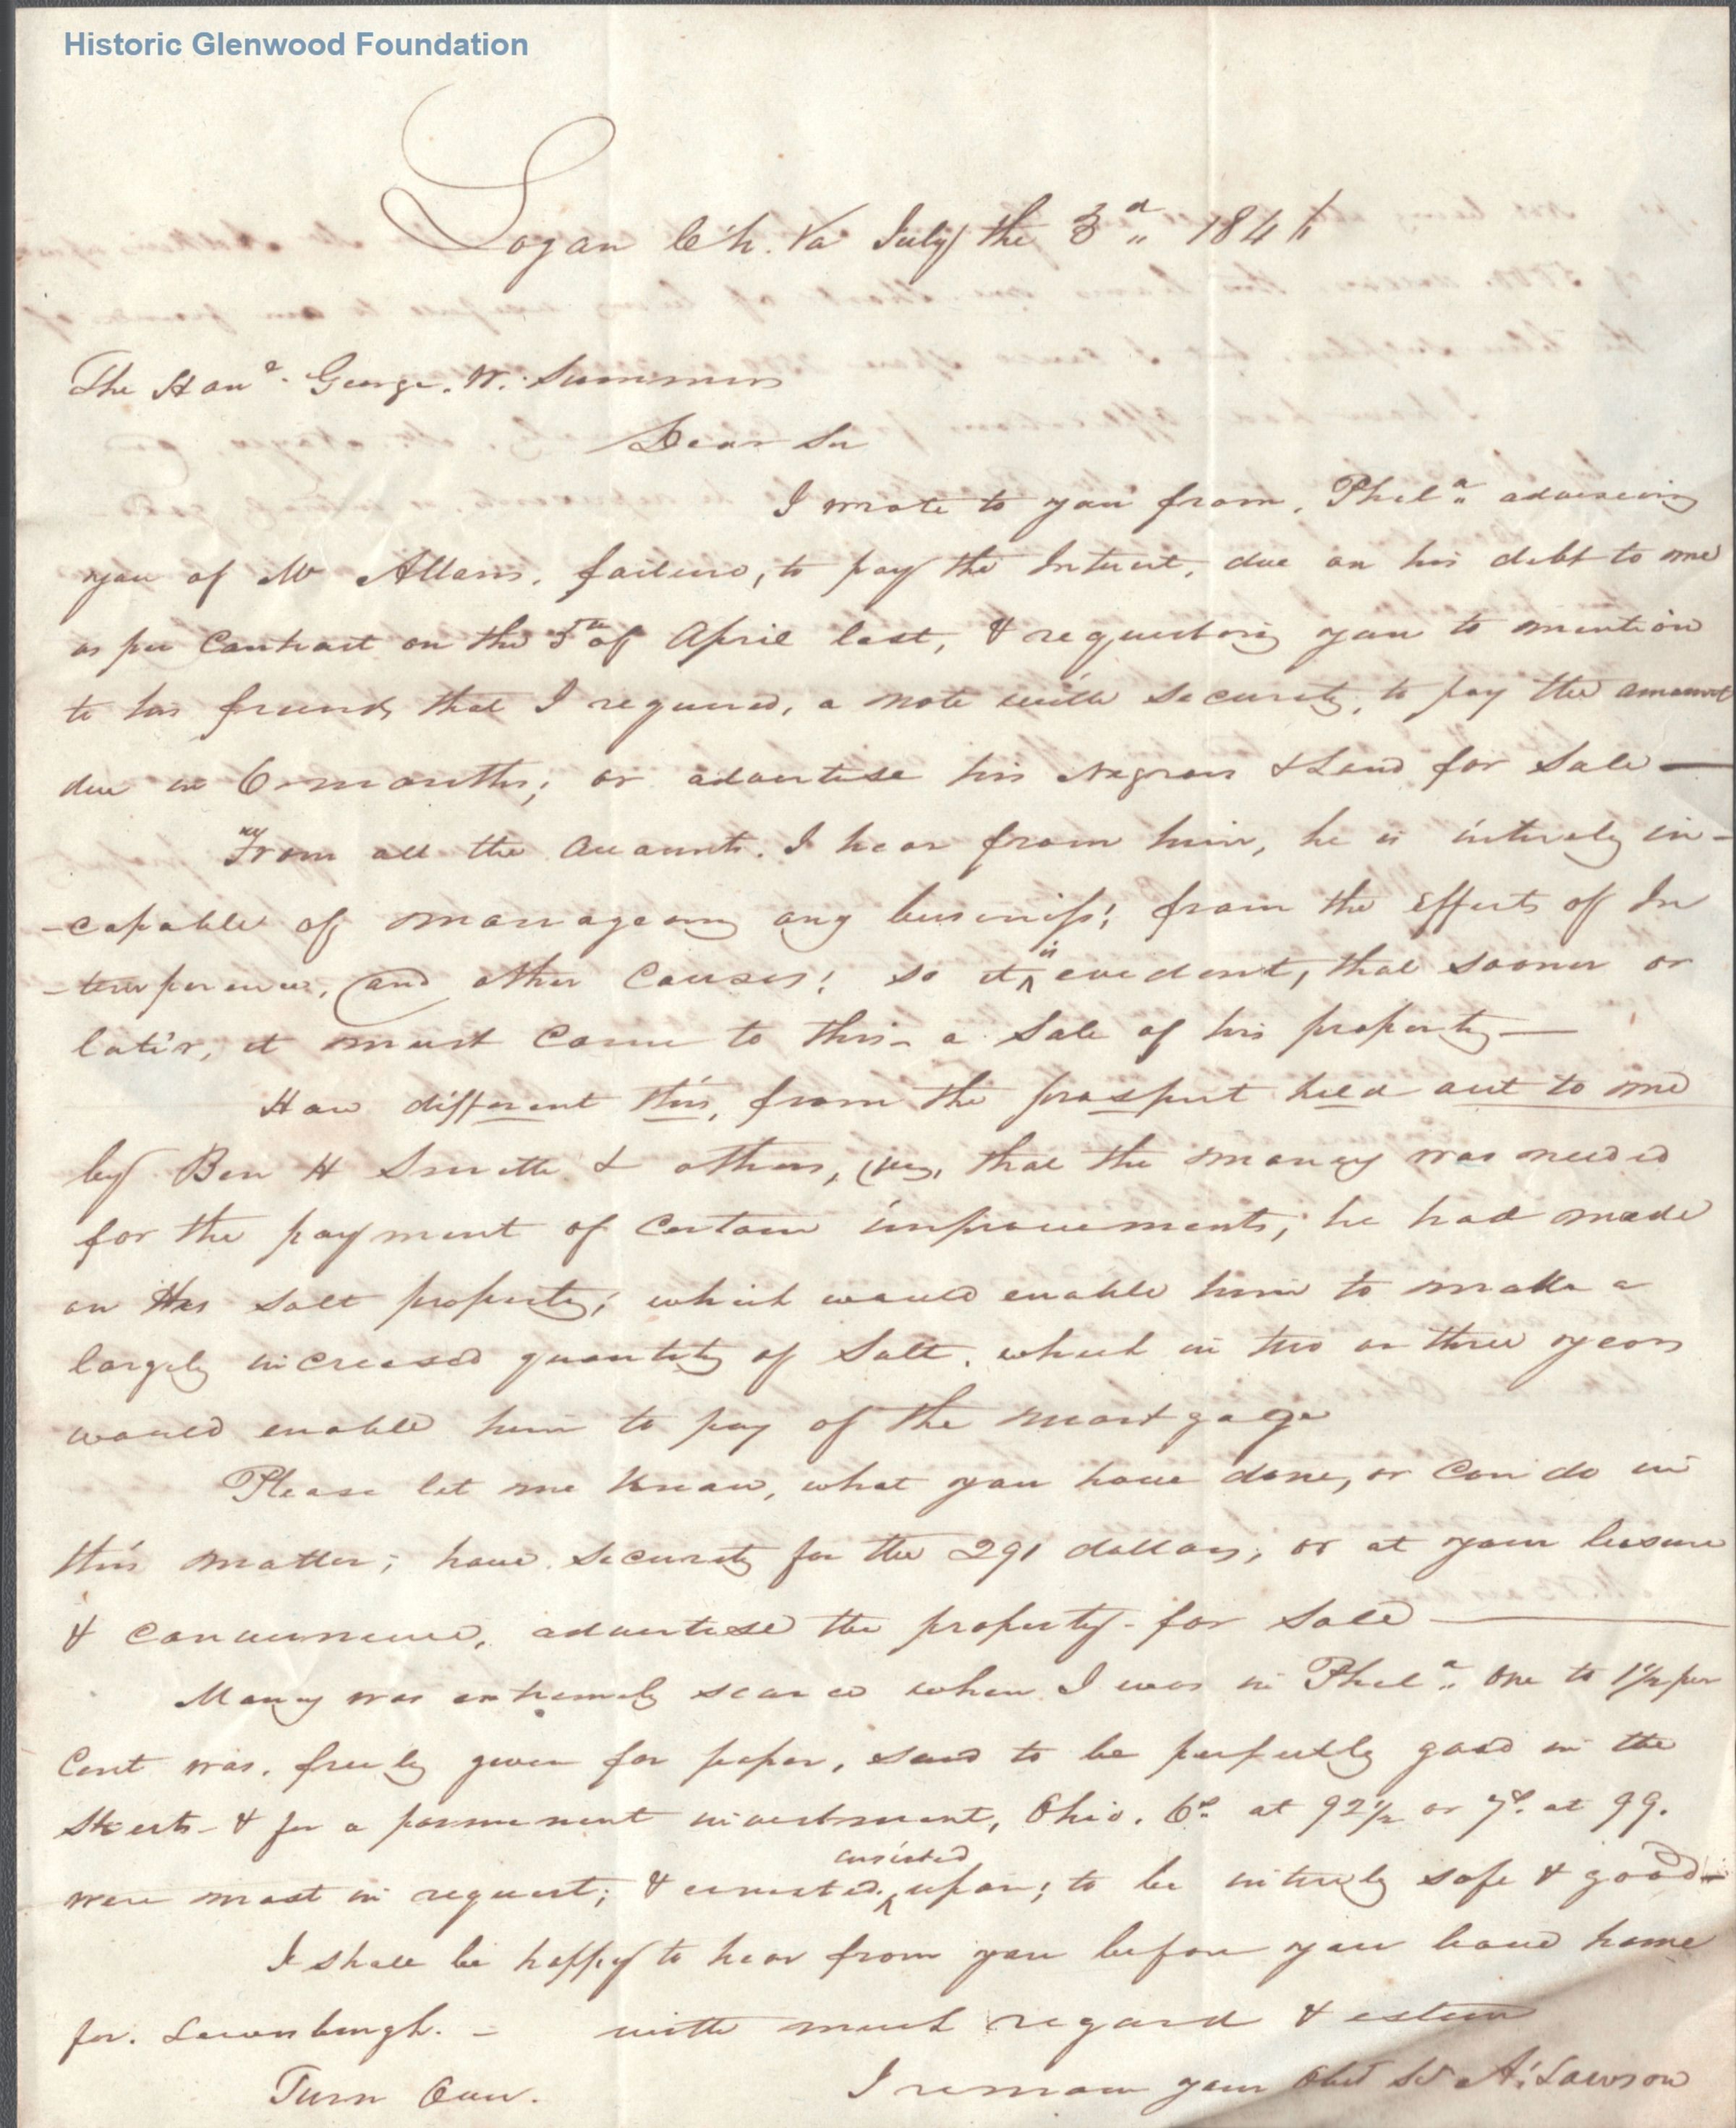 Historic Glenwood Foundation
Logan C.h. Va July the 3d 184
The Hon. George. W. Summers
Dear Sir
I wrote to you from, Phila. adviseing
you of Mr Allans, failure, to pay the Interest, due on his debt to me
as per Contract on the 5th of April last, & requesting you to mention
to his friends that I required, a note with security, to pay the amount
due in 6 months; or advertise his Negroes & Land for Sale—
From all the Accounts. I hear from him, he is intirely in-
-capable of manageing any business; from the effects of In
-temperence, and other Causes; so it is evident, that sooner or
later, it must come to this - a Sale of his property—
How different this, from the prospect held out to me
by Ben H Smith & others, (viz, that the money was needed
for the payment of certain improvements; he had made
on His Salt property; which would enable him to make a
largely increased quantity of Salt. which in two or three years
would enable him to pay of the mortgage
Please let me know, what you have done, or can do in
this matter; have security for the 291 dollars; or at your leasure
& convenience, advertise the property - for Sale—
Money was extremely scarce when I was in Phila. One to 1½ per
Cent was. freely given for paper, said to be perfectly good in the
Streets - & for a permenent investment, Ohio. 6s. at 92½ or 7s. at 99.
were most in request; & insisted upon; to be intirely safe & good-
I shall be happy to hear from you before you leave home
for. Lewisburgh. - with much regard & esteem
Turn Over. I remain your Obt St A. Lawson